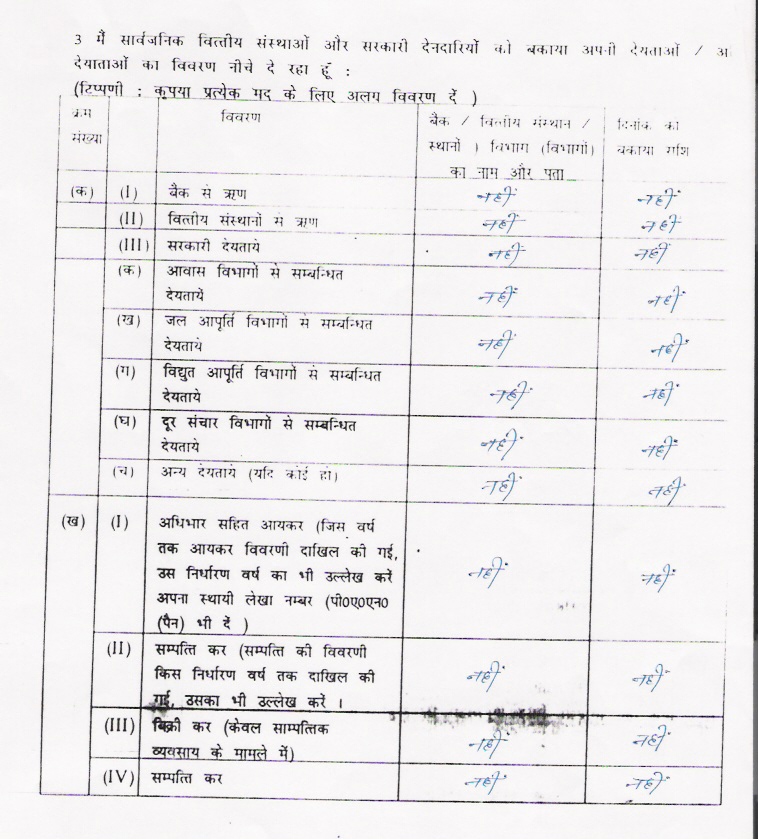 3 मैं सार्वजनिक वित्तीय संस्थाओं और सरकारी देनदारियों को बकाया अपनी देयताओं / अ
देयाताओं का विवरण नीचे दे रहा हूँ :
(टिप्पणी : कृपया प्रत्येक मद के लिए अलग विवरण दें )
क्रम संख्या
विवरण
बैंक / वित्तीय संस्थान /
स्थानों ) विभाग (विभागों)
का नाम और पता
दिनांक को
बकाया राशि
(क) (I) बैंक से ऋण नहीं नहीं
(II) वित्तीय संस्थानों से ऋण नहीं नहीं
(III) सरकारी देयताये नहीं नहीं
(क) आवास विभागों से सम्बन्धित
देयतायें नहीं नहीं
(ख) जल आपूर्ति विभागों से सम्बन्धित
देयताये नहीं नहीं
(ग) विद्युत आपूर्ति विभागों से सम्बन्धित
देयताये नहीं नहीं
(घ) दूर संचार विभागों से सम्बन्धित
देयताये नहीं नहीं
(च) अन्य देयताये (यदि कोई हो) नहीं नहीं
(ख) (I) अधिभार सहित आयकर (जिस वर्ष
तक आयकर विवरणी दाखिल की गई,
उस निर्धारण वर्ष का भी उल्लेख करें नहीं नहीं
अपना स्थायी लेखा नम्बर (पी0ए0एन0
(पैन) भी दें )
(II) सम्पत्ति कर (सम्पत्ति की विवरणी
किस निर्धारण वर्ष तक दाखिल की नहीं नहीं
गई, उसका भी उल्लेख करें ।
(III) बिक्री कर (केवल साम्पत्तिक
व्यवसाय के मामले में) नहीं नहीं
(IV) सम्पत्ति कर नहीं नहीं